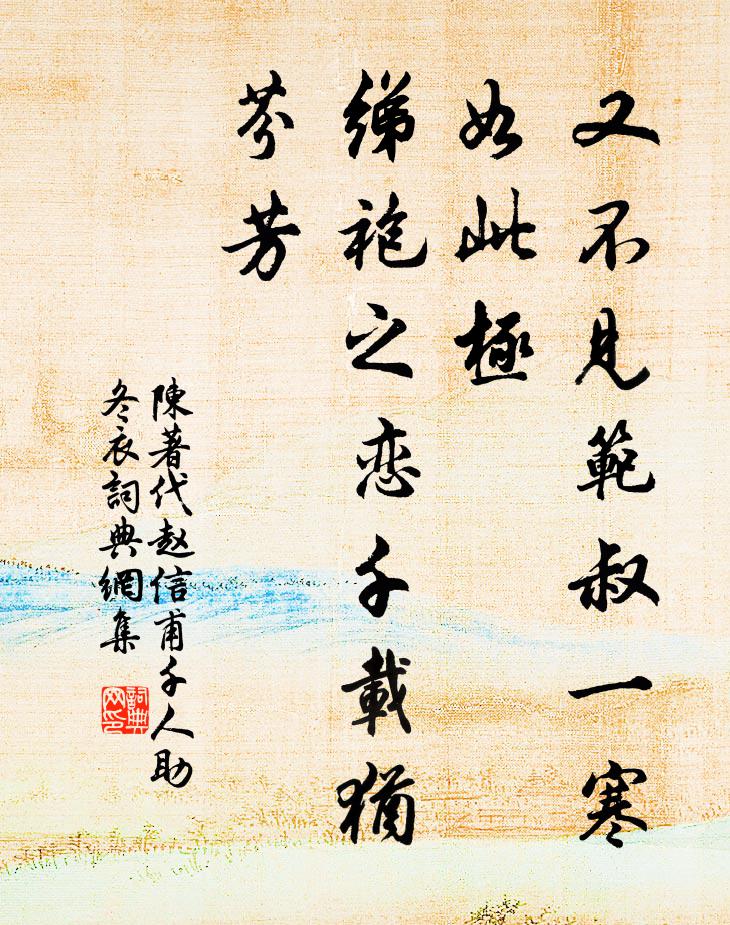 又不見範叔一寒
如此極
綈袍之恋千載猶
芬芳
陳著代赵信甫千人助
冬衣詞典網集
詞典
网印